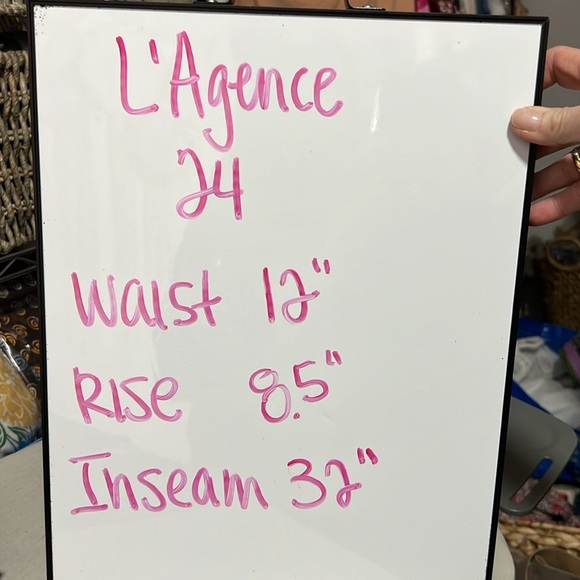 L'Agence
24
Waist 12"
Rise 8.5"
Inseam 32"